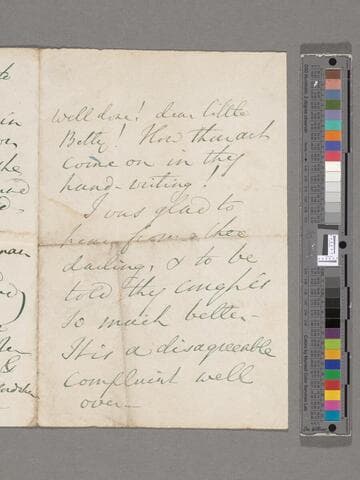 well done! dear little
Betty! How thou art
come on in thy
hand-writing!
I was glad to
hear from thee
darling, & to be
told thy cough is
so much better -
It is a disagreeable
complaint well
over -